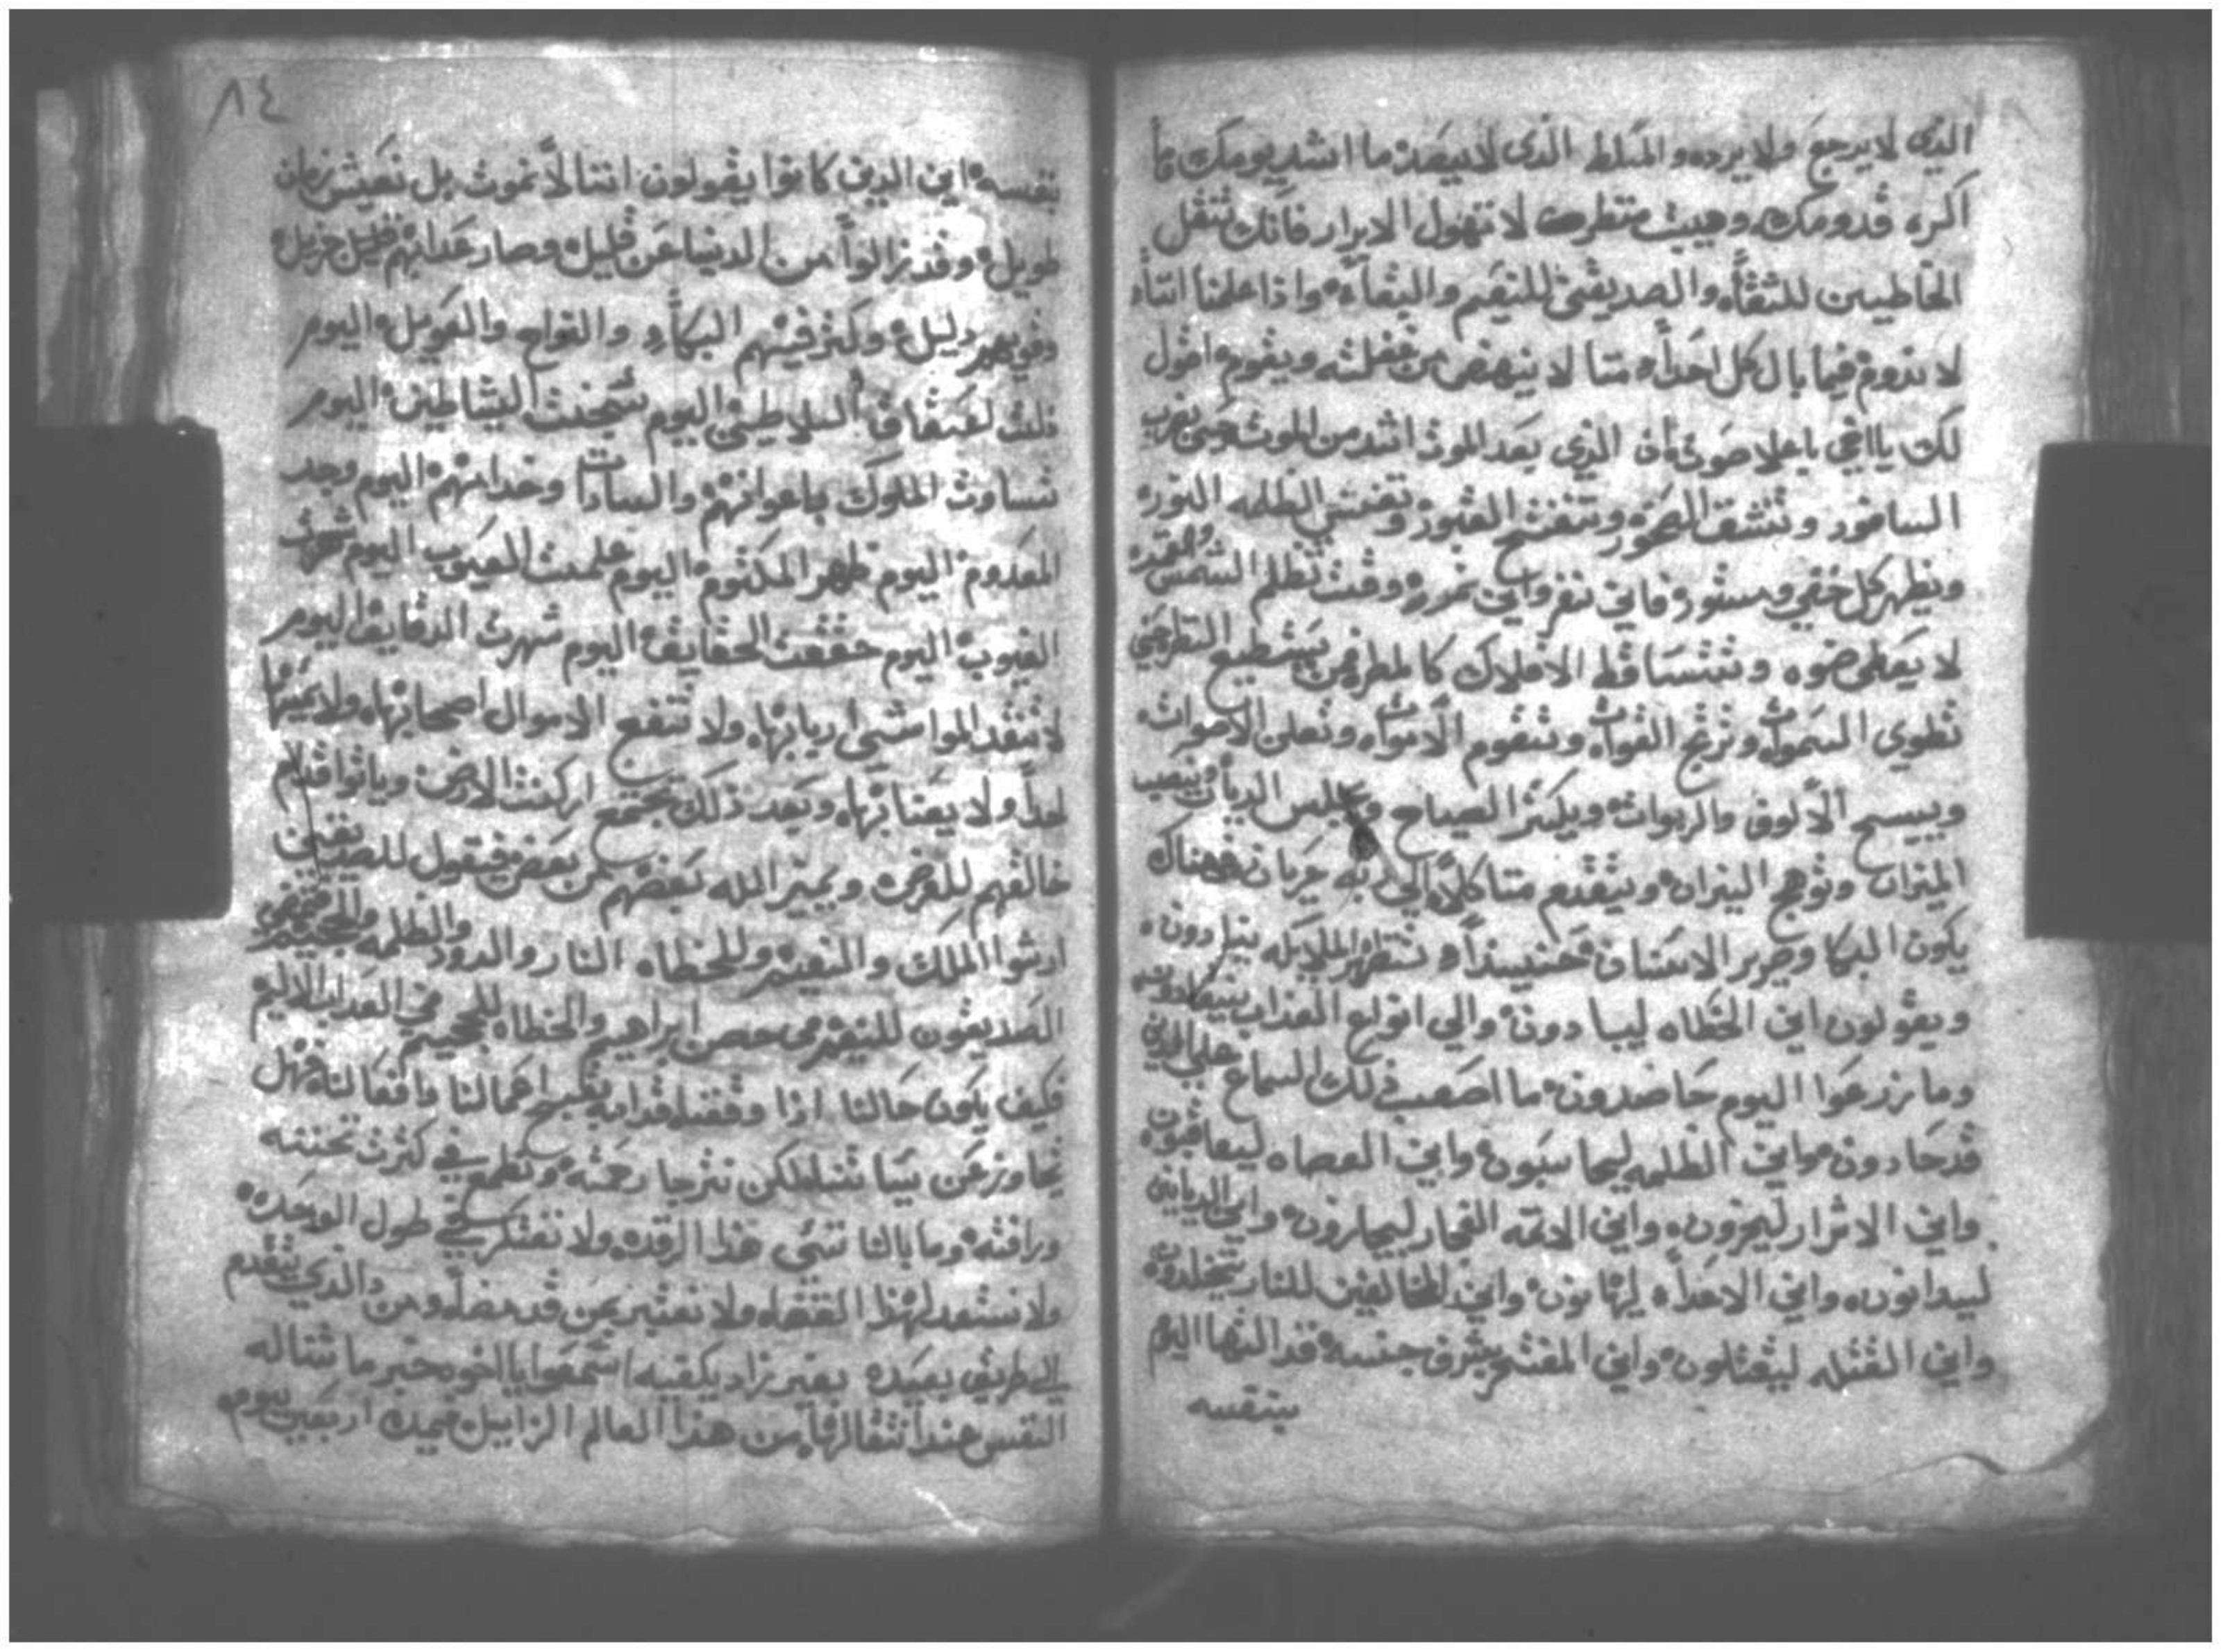 الذي لا يرجع ولا يرده والمسلط الذي لا يبعد ما اشد يومك ما
اكره قدومك وهيبت منظرك لا تهول الابرار فانك تنقل
الخاطيين للشقاه والصديقين للنعيم والبقاه واذا علمنا اننا
لا ندوم فما بال كل احدا منا لا ينهض من غفلته ويقوم اقول
لك يا اخي باعلا صوت ان الذي بعد الموت اشد من الموت حين يضرب
السافور وتنشق الصخور وتنفتح القبور وتغشي الظلمه النور
ويظهر كل خفي ومستور فاين نفر واين نمر وقت تظلم الشمس والقمر
لا يعطي ضوه وتتساقط الافلاك كالمطر فمن يستطيع النظر حين
تطوي السموات وترتج القوات وتقوم الاموات وتعلن الاصوات
ويسبح الالوف والربوات ويكثر الصياح ويجلس الديان وينصب
الميزان وتوهج النيران ويتقدم منا كلا الي ربه عريان فهناك
يكون البكا وصرير الاسنان حينيذا تنظر الملايكه ينادون
ويقولون اين الخطاه ليبادون والي انواع العذاب ينقادون
وما زرعوا اليوم حاصدون ما اصعب ذلك السماع علي الذين
قد حادون واين الظلمه ليحاسبون واين العصاه ليعاقبون
واين الاشرار ليخزون واين الائمه الفجار ليجازون واين الديانين
ليدانون واين الاعدا ليهانون واين المخالفين للنار يتخلدون
واين القتله ليقتلون واين المفتخر بشرف جنسه قد التها اليوم
بنفسه
٨٤
بنفسه اين الذين كانوا يقولون اننا لا نموت بل نعيش زمان
طويل وقد زالوا من الدنيا عن قليل وصار عدابهم جزيل
وقويهم دليل وكثر فيهم البكاء والنواح والعويل اليوم
السلاطين اليوم سجنت الشياطين اليوم
تساوت الملوك باعوانهم والسادات وخدامهم اليوم وجد
المعدوم اليوم ظهر المكتوم اليوم علمت العيوب اليوم
الغيوب اليوم حققت الحقايق اليوم شهرت الدقايق اليوم
لا تنقد المواشي اربابها ولا تنفع الاموال اصحابها ولا
احدا ولا يعنا بها وبعد ذلك تجتمع اركنت الارض وياتوا قدام
خالقهم للعرض ويميز الله بعضهم من بعض فيقول للصديقين
ارثوا الملك والنعيم وللخطاه النار والدود والظلمه والجحيم
الصديقون للنعيم في حصن ابراهيم والخطاه للجحيم في العداب الاليم
فكيف يكون حالنا ادا وقفنا قدامه بقبيح اعمالنا وافعالنا فهل
يتجاوز عن لكن نترجا رحمته ونطمع في كثرت تحننه
ورافته وما بالنا ننسي هذا الرقده ولا نفتكر في طول الوحده
ولا نستعد لهذا القضاه ولا نعتبر بمن قد مضا ومن دا الذي يتقدم
الي طريق بعيده بغير زاد يكفيه اسمعوا يا اخوه خبر ما تناله
النفس عند انتقالها من هذا العالم الزايل مده اربعين يوم